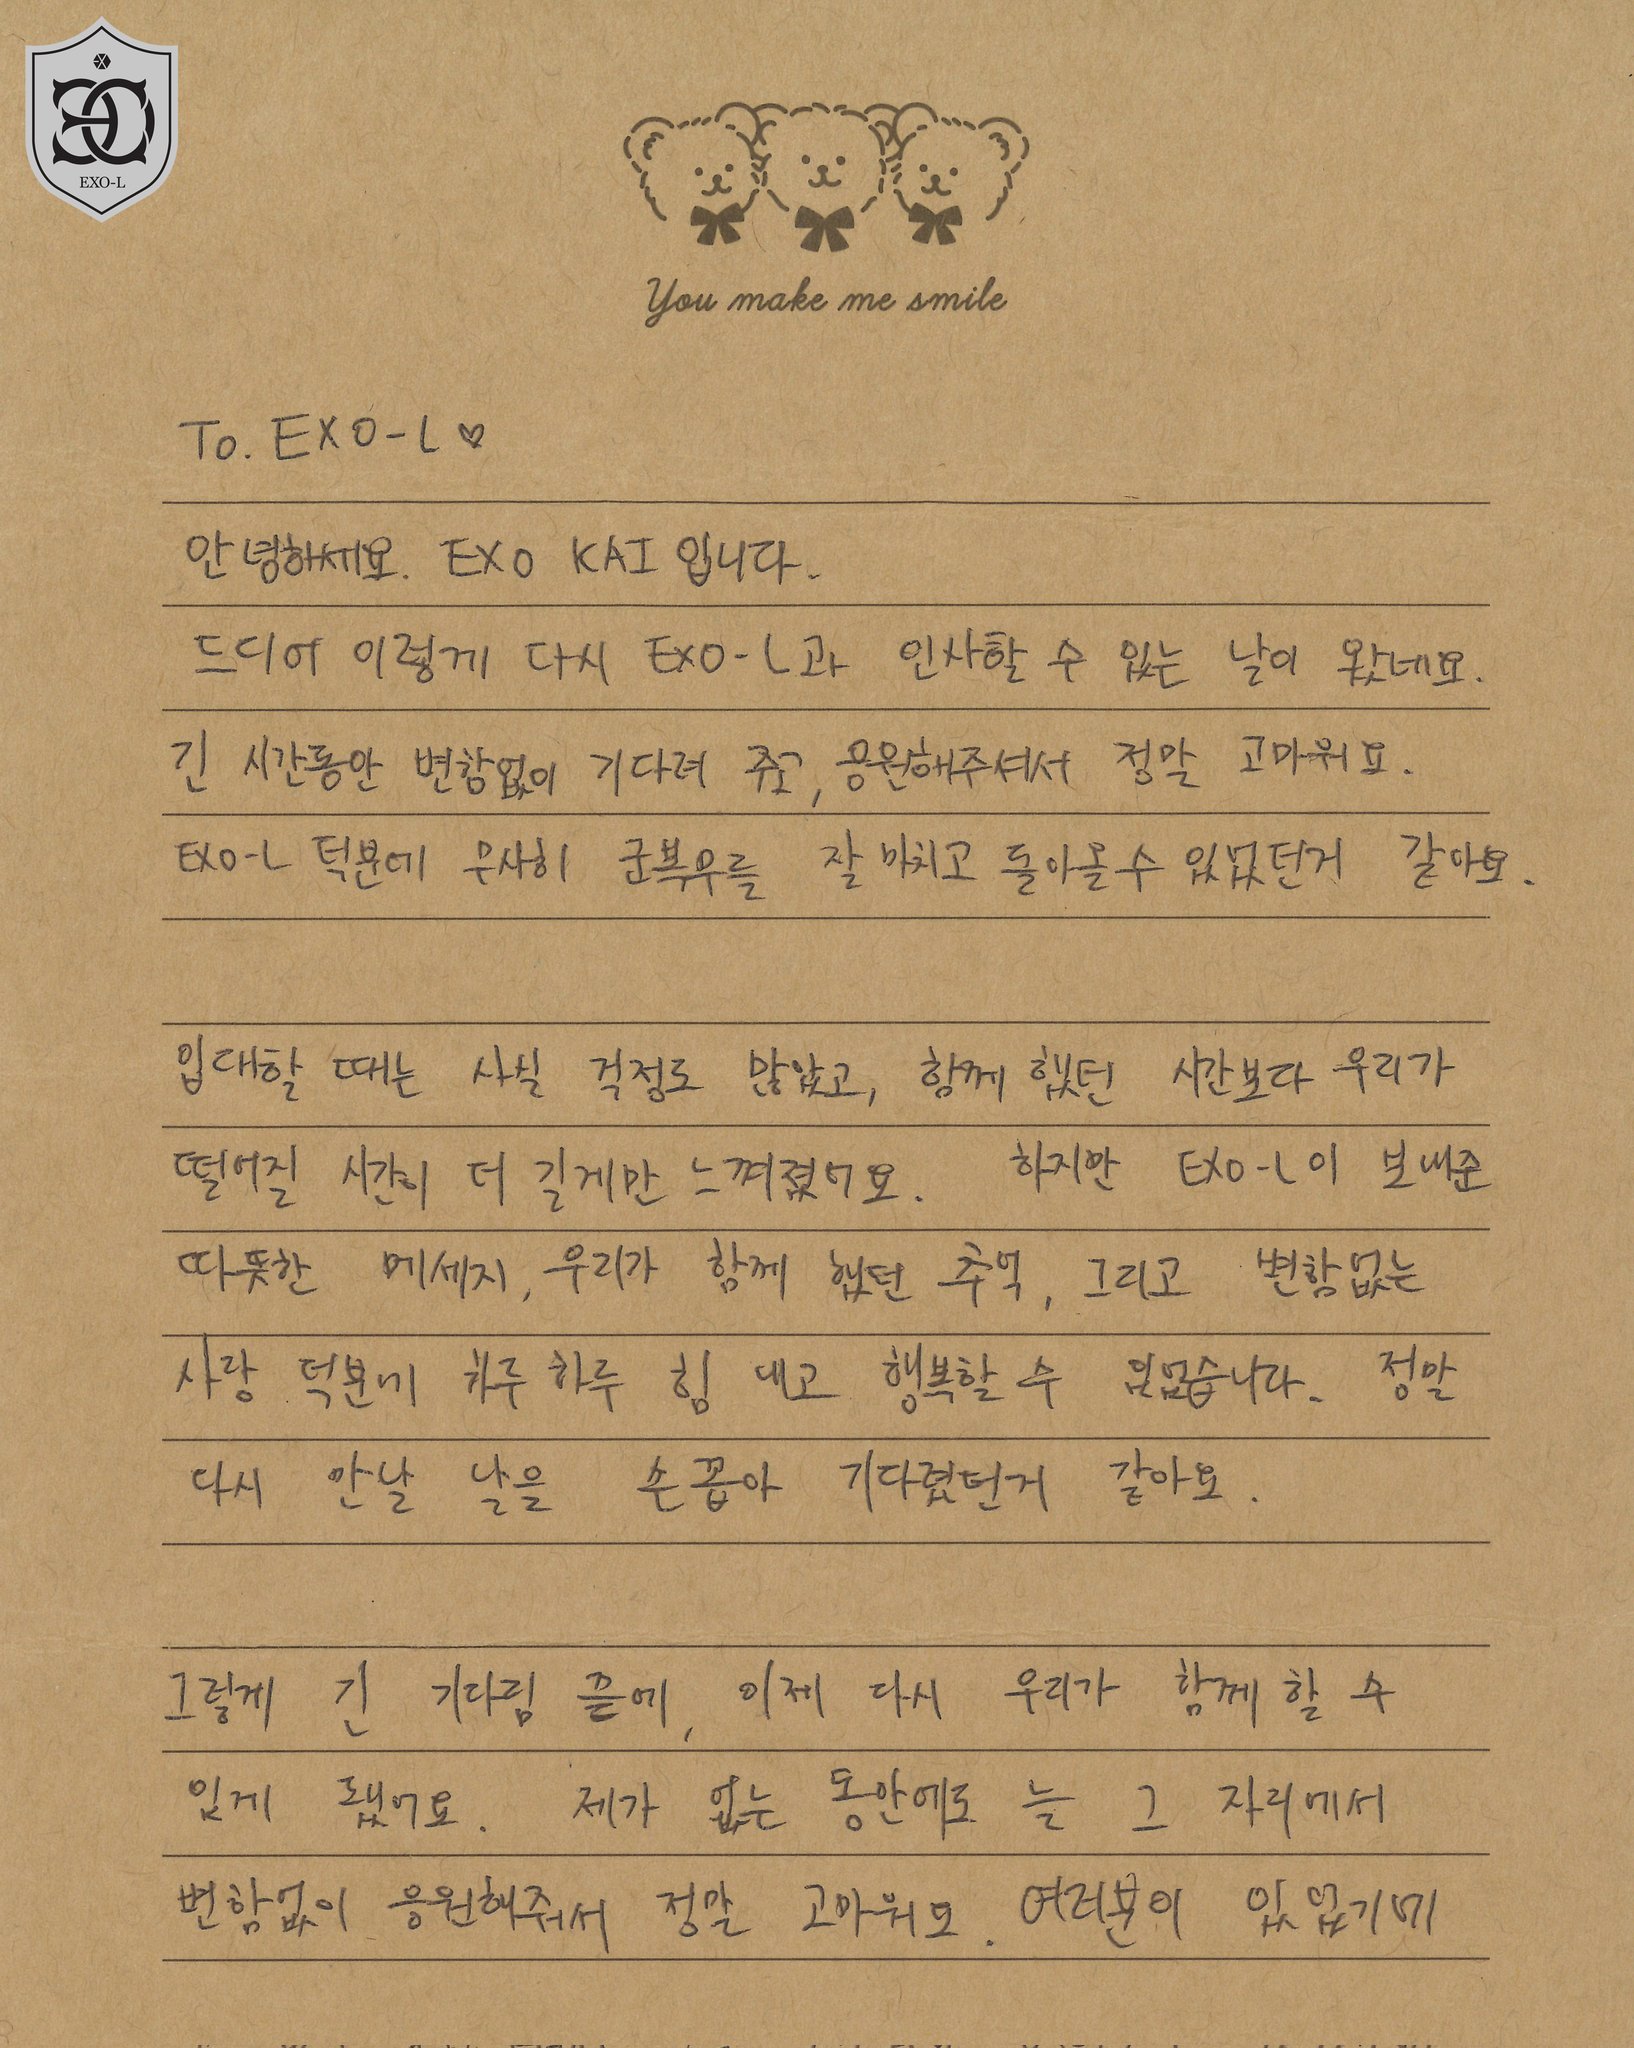 EXO-L
You make me smile
To. EXO-L♡
안녕하세요. EXO KAI 입니다.
드디어 이렇게 다시 EXO-L과 인사할 수 있는 날이 왔네요.
긴 시간동안 변함없이 기다려 주고, 응원해주셔서 정말 고마워요.
EXO-L 덕분에 무사히 군복무를 잘 마치고 돌아올 수 있었던거 같아요.
입대할 때는 사실 걱정도 많았고, 함께 했던 시간보다 우리가
떨어질 시간이 더 길게만 느껴졌어요. 하지만 EXO-L이 보내준
따뜻한 메세지, 우리가 함께 했던 추억, 그리고 변함없는
사랑 덕분에 하루하루 힘 내고 행복할 수 있었습니다. 정말
다시 만날 날을 손꼽아 기다렸던거 같아요.
그렇게 긴 기다림 끝에, 이제 다시 우리가 함께 할 수
있게 됐어요. 제가 없는 동안에도 늘 그 자리에서
변함없이 응원해줘서 정말 고마워요. 여러분이 있었기에